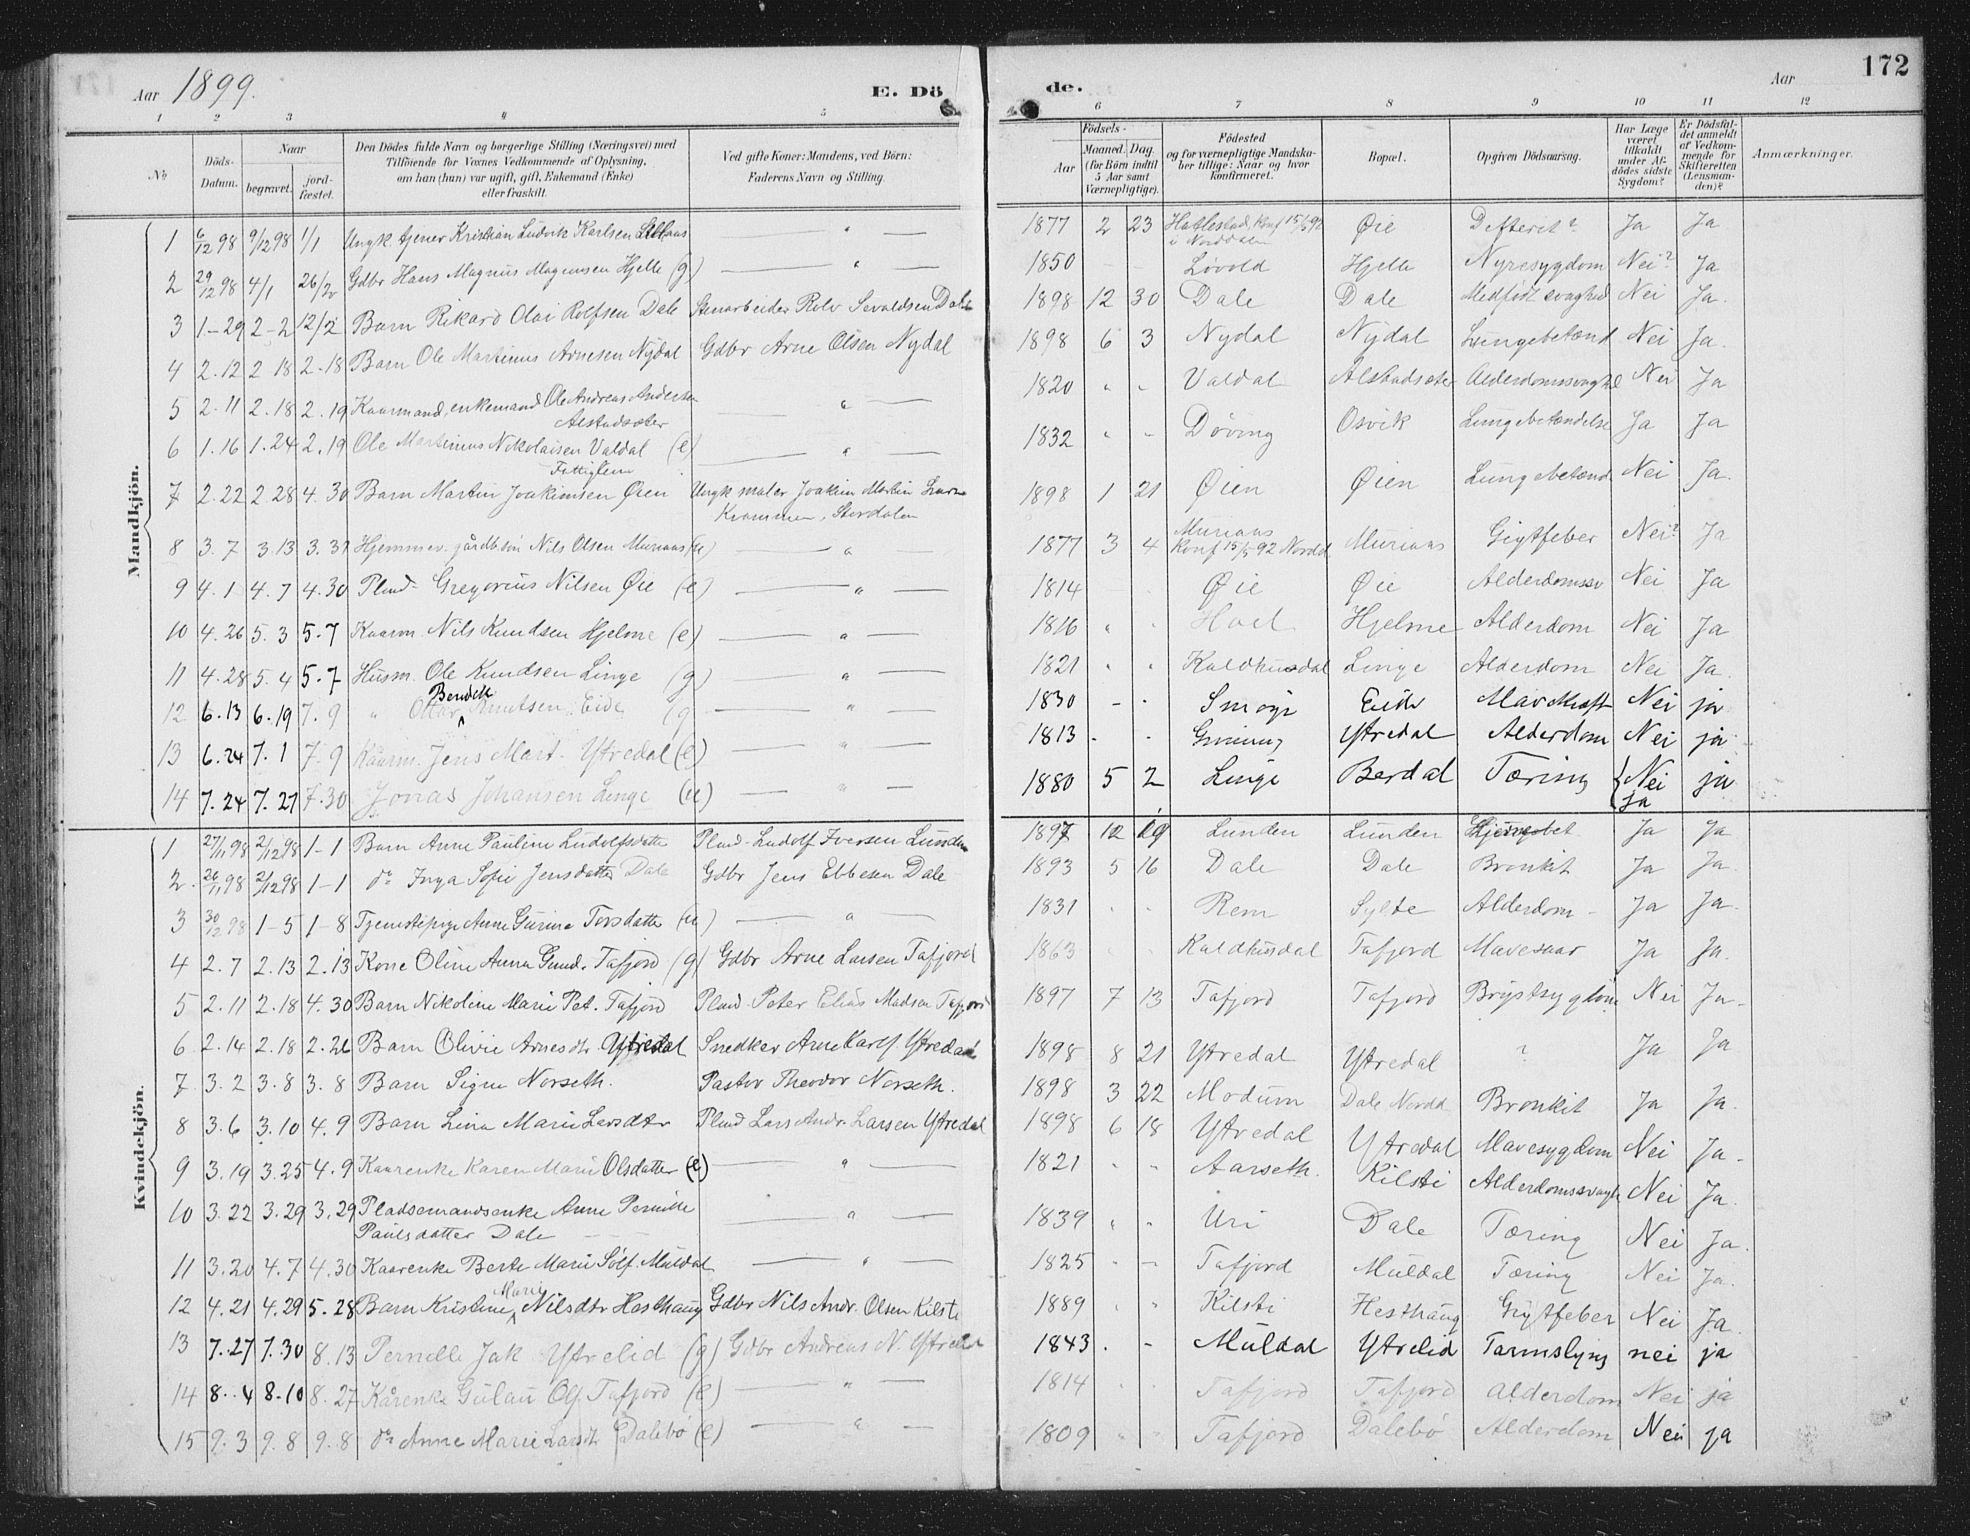 Aar 1899. E. Dö de. Aar 172
1 2 3 4 5 6 7 8 9 10 11 12
No
Döds-Datum.
Naar
begravet.
jordfæstet.
Den Dödes fulde Navn og borgerlige Stilling (Næringsvei) med
Tilföiende for Voxnes Vedkommende af Oplysning,
om han (hun) var ugift, gift, Enkemand (Enke)
eller fraskilt.
Ved gifte Koner: Mandens, ved Börn:
Faderens Navn og Stilling.
Födsels-
Aar
Maaned. Dag.
(for Börn indtil
5 Aar samt
Værnepligtige).
Födested
og for værnepligtige Mandska-
ber tillige: Naar og hvor
konfirmeret.
Bopæl.
Opgiven Dödsaarsag.
Har Læge
været
tilkaldt
under Af-
dödes sidste
Sygdom?
Er Dödsfal-
det anmeldt
af Vedkom-
mende for
Skifteretten
(Lensman-
den)?
Anmærkninger.
Mandkjön.
1 6/12 98 9/12 98 1/1 Ungk tjener Kristian Ludvik Karlsen " 1877 2 23 Hatlestad, Konf 15/5 92 i Norddalen Øie Defterit? Ja Ja
2 29/12 98 4/1 26/2 Gdbr Hans Magnus Mogensen Hjelle (g) " 1850 - - Løvold Hjelle Nyresygdom Nei? Ja
3 1-29 2-2 12/2 Barn Rikard Olai Rolfsen Dale Stenarbeider Rolv Sevaldsen Dale 1898 12 30 Dale Dale Medfødt svaghed Nei Ja.
4 2.12 2 18 2-18 Barn Ole Martinus Arnesen Nydal Gdbr Arne Olsen Nydal 1898 6 3 Nydal Nydal Lungebetænd Nei Ja.
5 2.11 2.18 2.19 Kaarmand, enkemand Ole Andreas Andersen Alstadsæter " 1820 " - Valdal Alstadsæter Alderdomssvaghed Nei Ja
6 1.16 1.24 2.19 Ole Martinius Nikolaisen Valdal (e) Fattiglem " 1832 " - Døving Osvik Lungebetændelse Ja Ja
7 2.22 2.28 4.30 Barn Martin Joakimsen Øien Ungk maler Joakim Martin Krammen, Stordalen 1898 1 21 Øien Øien Lungebetænd Nei Ja.
8 3.7 3.13 3.31 Hjemmev. gårdbsøn Nils Olsen Muriaas (u) " 1877 3 4 Muriaas Konf 15/5 92 Nordd Muriaas Gigtfeber Nei? Ja
9 4.1 4.7 4.30 Plmd- Gregorius Nilsen Øie (e) " 1814 - - Øie Øie Alderdomssv Nei Ja
10 4.26 5.3 5.7 Kaarm. Nils Knudsen Hjelme (e) " 1816 " " Hjelme Alderdom Nei Ja
11 4.28 5.4 5.7 Husm. Ole Knudsen Linge (g) " 1821 " " Kaldhusdal Linge Alderdom Nei Ja.
12 6.13 6.19 7.9 " Ottar Bendik Knutsen Eide (g " 1830 - - Smoge Eide Mavekræft Nei ja
13 6.24 7.1 7.9 Kaarm. Jens Mart. Ytredal (e) " 1813 - - Grønning Ytredal Alderdom Nei ja
14 7.24 7.27 7.30 Jonas Johansen Linge (u) " 1880 5 2 Linge Berdal Tæring {Nei Ja ja
Kvindekjön.
1 27/11 98 2/12 98 1-1 Barn Anne Pauline Ludolfsdatte Plmd- Ludolf Iversen Lunden 1897 12 19 Lunden Lunden Ja Ja
2. 26/11 98 2/12 98 1-1 do Inga Sofie Jensdatter Dale Gdbr Jens Ebbesen Dale 1893 5 16 Dale Dale Bronkit Ja Ja.
3 30/12 98 1-5 1-8 Tjenestepige Anne Gurine Torsdatte (u) " 1831 " " Rem Sylte Alderdom- Ja Ja.
4 2.7 2.13 2.13 Kone Oline Anna Gund. Tafjord (g) Gdbr Arne Larsen Tafjord 1863 " " Kaldhusdal Tafjord Mavesaar Ja Ja.
5 2.11 2.18 4.30 Barn Nikoline Marie Pet. Tafjord Plmd- Peter Elias Madsen Tafjord 1897 7 13 Tafjord Tafjord Brystsygdom Nei Ja-
6 2.14 2.18 2.26 Barn Olivie Arnesdtr Ytredal Snedker Arne Karls. Ytredal 1898 8 21 Ytredal Ytredal ? Ja Ja
7 3.2 3.8 3.8 Barn Signe Norseth. Pastor Theodor Norseth. 1898 3 22 Modum Dale Nordd Bronkit Ja Ja.
8 3.6 3.10 4.9 Barn Lina Marie Larsdtr Plmd Lars Andr. Larsen Ytredal 1898 6 18 Ytredal Ytredal Mavesygdom Nei Ja-
9 3.19 3.25 4.9 Kaarenke Karen Marie Olsdatter (e) " 1821 " " Aarseth. Kilsti Alderdomssvagh Nei Ja.
10 3.22 3.29 3.29 Pladsemandsenke Anne Pernille Paulsdatter Dale " 1839 " " Uri Dale Tæring Nei Ja.
11 3.20 4.7 4.30 Kaarenke Berte Marie Solf. Muldal " 1825 " - Tafjord Muldal Tæring Nei Ja.
12 4.21 4.29 5.28 Barn Kristine Marie Nilsdtr Hesthaug Gdbr Nils Andr. Olsen Kilsti 1889 " " Kilsti Hesthaug Gigtfeber Nei Ja.
13 7.27 7.30 8.13 Pernelle Jak Ytrelid (g) Gdbr Andreas N. Ytrelid 1843 . - Muldal Ytrelid Tarmslyng nei ja
14 8.4 8.10 8.27 Kårenke Gulau Ol. Tafjord (e) " 1814 " " Tafjord Tafjord Alderdom Nei ja
15 9.3 9.8 9.8 do Anne Marie Larsdt Dalebø (e) " 1809 " " Tafjord Dalebø Alderdom Nei ja